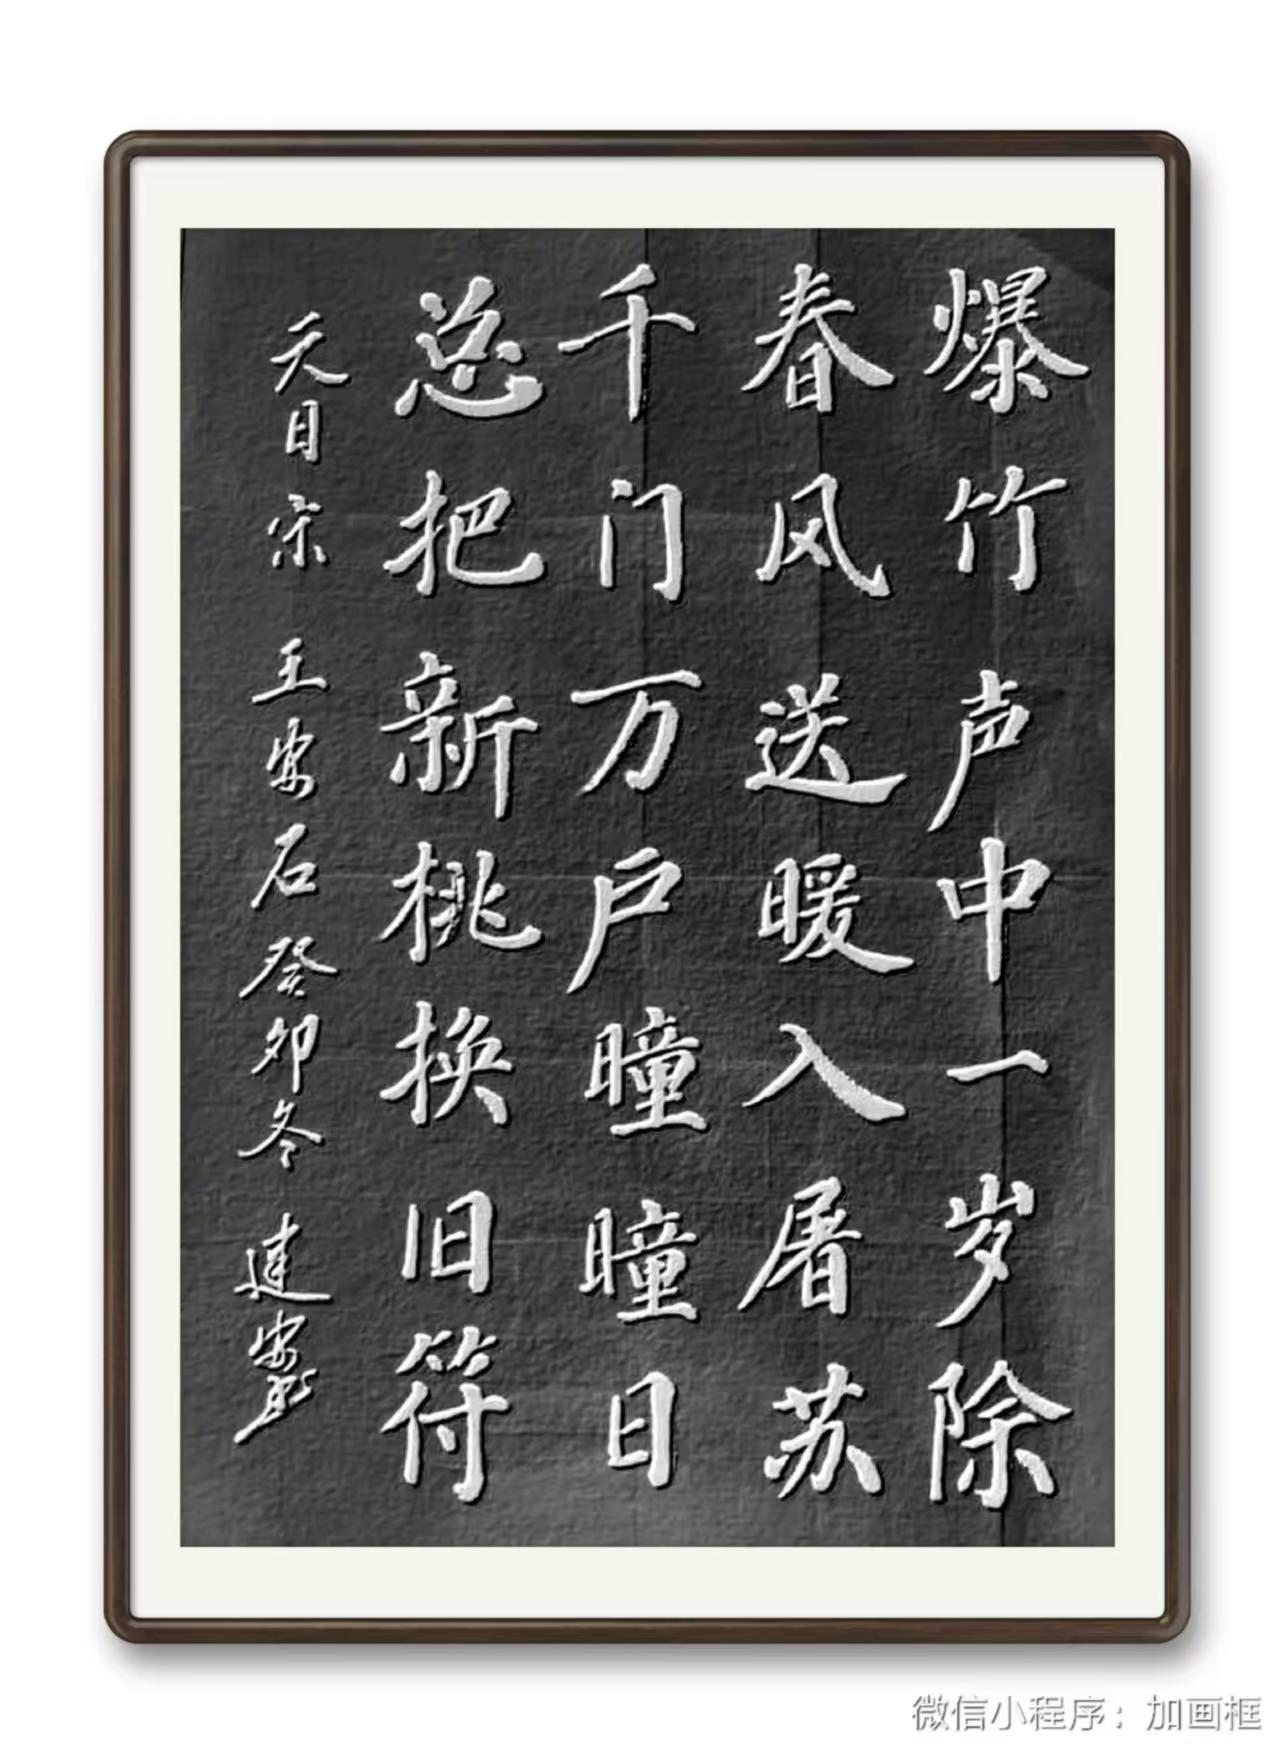 爆竹声中一岁除
春风送暖入屠苏
千门万户曈曈日
总把新桃换旧符
元日宋王安石癸卯冬建安
微信小程序：加画框